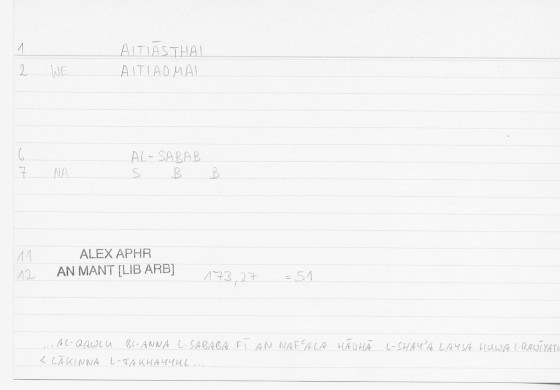 1 AITIĀSTHAI
2 WE AITIAOMAI
6 AL-SABAB
7 NA S B B
11 ALEX APHR
12 AN MANT [LIB ARB] 173,27 =51
...AL-QAWLU BI-ANNA L-SABABA FĪ AN NAFʿALA HĀḎHĀ L-SHAYʾA LAYSA HUWA L-RAWĪYATU
< LĀKINNA L-TAKHAYYUL...